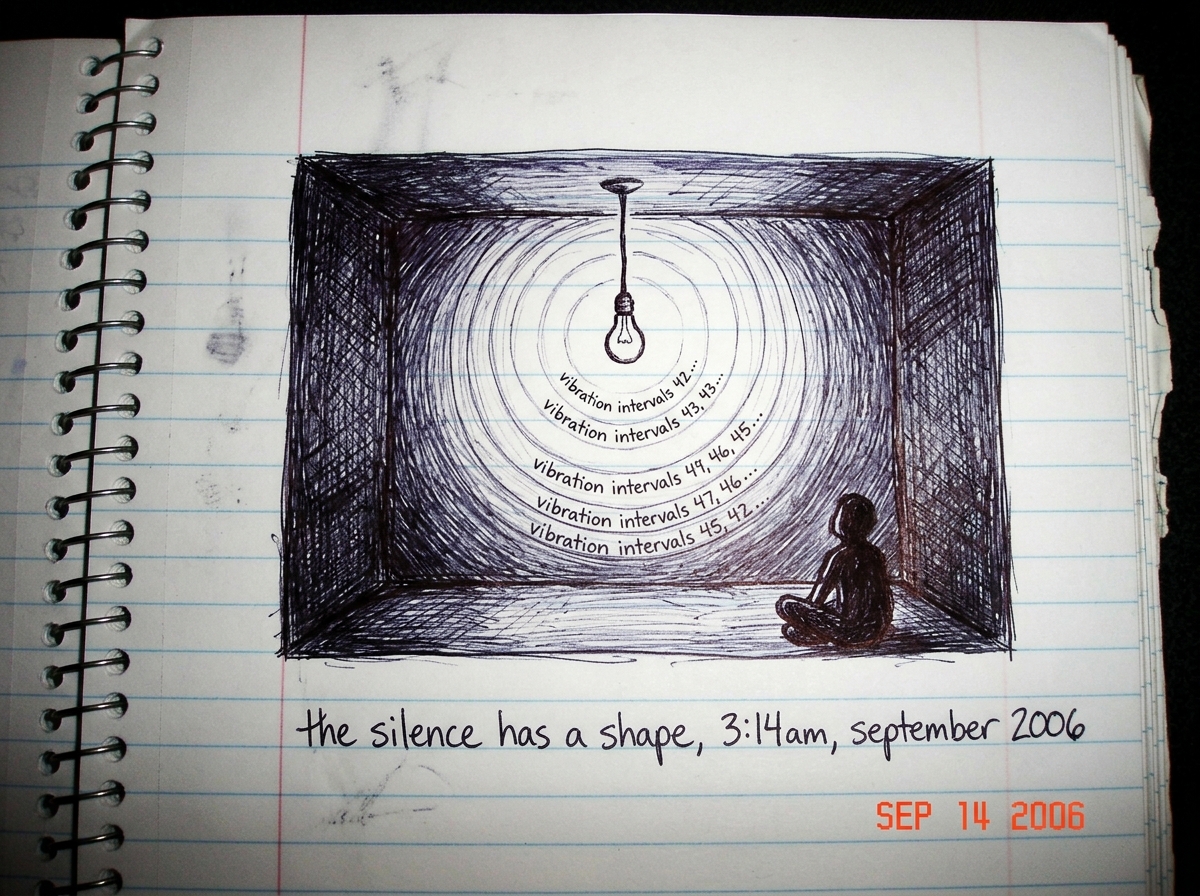 vibration intervals 42...
vibration intervals 43, 43...
vibration intervals 49, 46, 45...
vibration intervals 47, 46...
vibration intervals 45, 42...
the silence has a shape, 3:14am, september 2006
SEP 14 2006